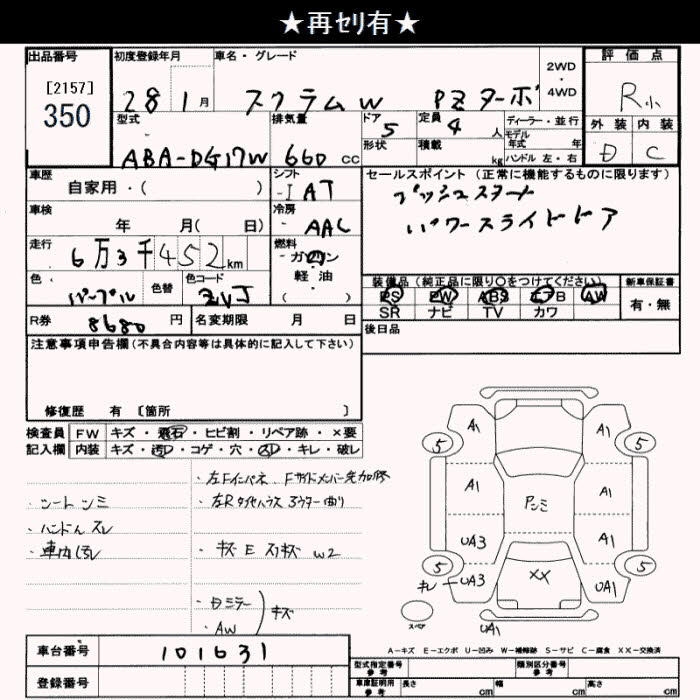 ★再ｾﾘ有★
出品番号
[2157]
350
初度登録年月
28 1月
車名・グレード
スクラムW PZターボ
2WD
・
4WD
評価点
R小
外装 内装
D C
型式
ABA-DG17W
排気量
660 cc
ドア
5
定員
4 人
ディーラー・並行
モデル
年式 年
形状
積載 kg
ハンドル 左・右
車歴
自家用・( )
シフト
-I AT
セールスポイント (正常に機能するものに限ります)
プッシュスタート
パワースライドドア
車検
年 月( 日)
冷房
AAC
走行
6万3千452km
燃料
ガソリン
・
軽・油
( )
色
パープル
色替
色コード
ZVJ
装備品 (純正品に限り○をつけてください)
PS PW ABS エアB AW
SR ナビ TV カワ
新車保証書
有・無
R券 8680 円
名変期限 月 日
後日品
注意事項申告欄(不具合内容等は具体的に記入して下さい)
修復歴 有 [箇所 ]
検査員 FW キズ・飛石・ヒビ割・リペア跡・×要
記入欄 内装 キズ・汚レ・コゲ・穴・スレ・キレ・破レ
・シートシミ
・ハンドルスレ
・車内汚レ
・左Fインパネ、Fサイドメンバー先加修
・左Rタイヤハウス アウター曲り
・キズ E スリキズ W2
・Dミラー
・AW
キズ
A1 A1
5 5
A1 A1
Pシミ
UA3 A1
5 5
キレ UA3 XX UA1
スペア
UA1
A-キズ E-エクボ U-凹み W-補修跡 S-サビ C-腐食 XX-交換済
車台番号 101631
登録番号
型式指定番号
参考
類別区分番号
参考
車庫証明用
参考
長さ cm 幅 cm 高さ cm